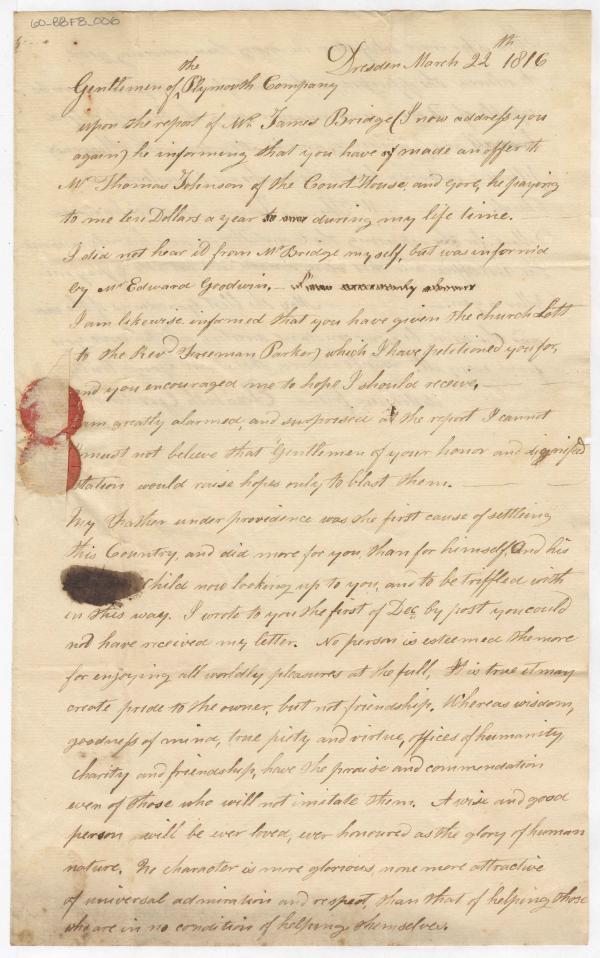 60-BBFB-006
Dresden March 22th 1816
Gentlemen of the Plymouth Company
upon the report of Mr. James Bridge (I now address you
again) he informing that you have made an offer to
Mr Thomas Johnson of the Court House, and Gore, he paying
to me ten Dollars a year during my life time.
I did not hear it from Mr Bridge myself, but was informd
by Mr Edward Goodwin. —
I am likewise informed that you have given the church Lott
to the Revd Freeman Parker) which I have petitioned you for,
and you encouraged me to hope I should receive,
am greatly alarmed, and surprised at the report I cannot
must not believe that Gentlemen of your honor and dignified
station would raise hopes only to blast them. —
My Father under providence was the first cause of settling
this Country, and did more for you, than for himself, And his
Child now looking up to you, and to be triffled with
in this way. I wrote to you the first of Dec. by post you could
not have received my letter. No person is esteemed the more
for enjoying all worldly pleasures at the full, It is true it may
create pride to the owner, but not friendship. Whereas wisdom,
goodness of mind, true piety and virtue, offices of humanity
charity and friendship, have the praise and commendation
even of those who will not imitate them. A wise and good
person will be ever loved, ever honoured as the glory of human
nature. No character is more glorious, none more attractive
of universal admiration and respect, than that of helping those
who are in no condition of helping themselves.